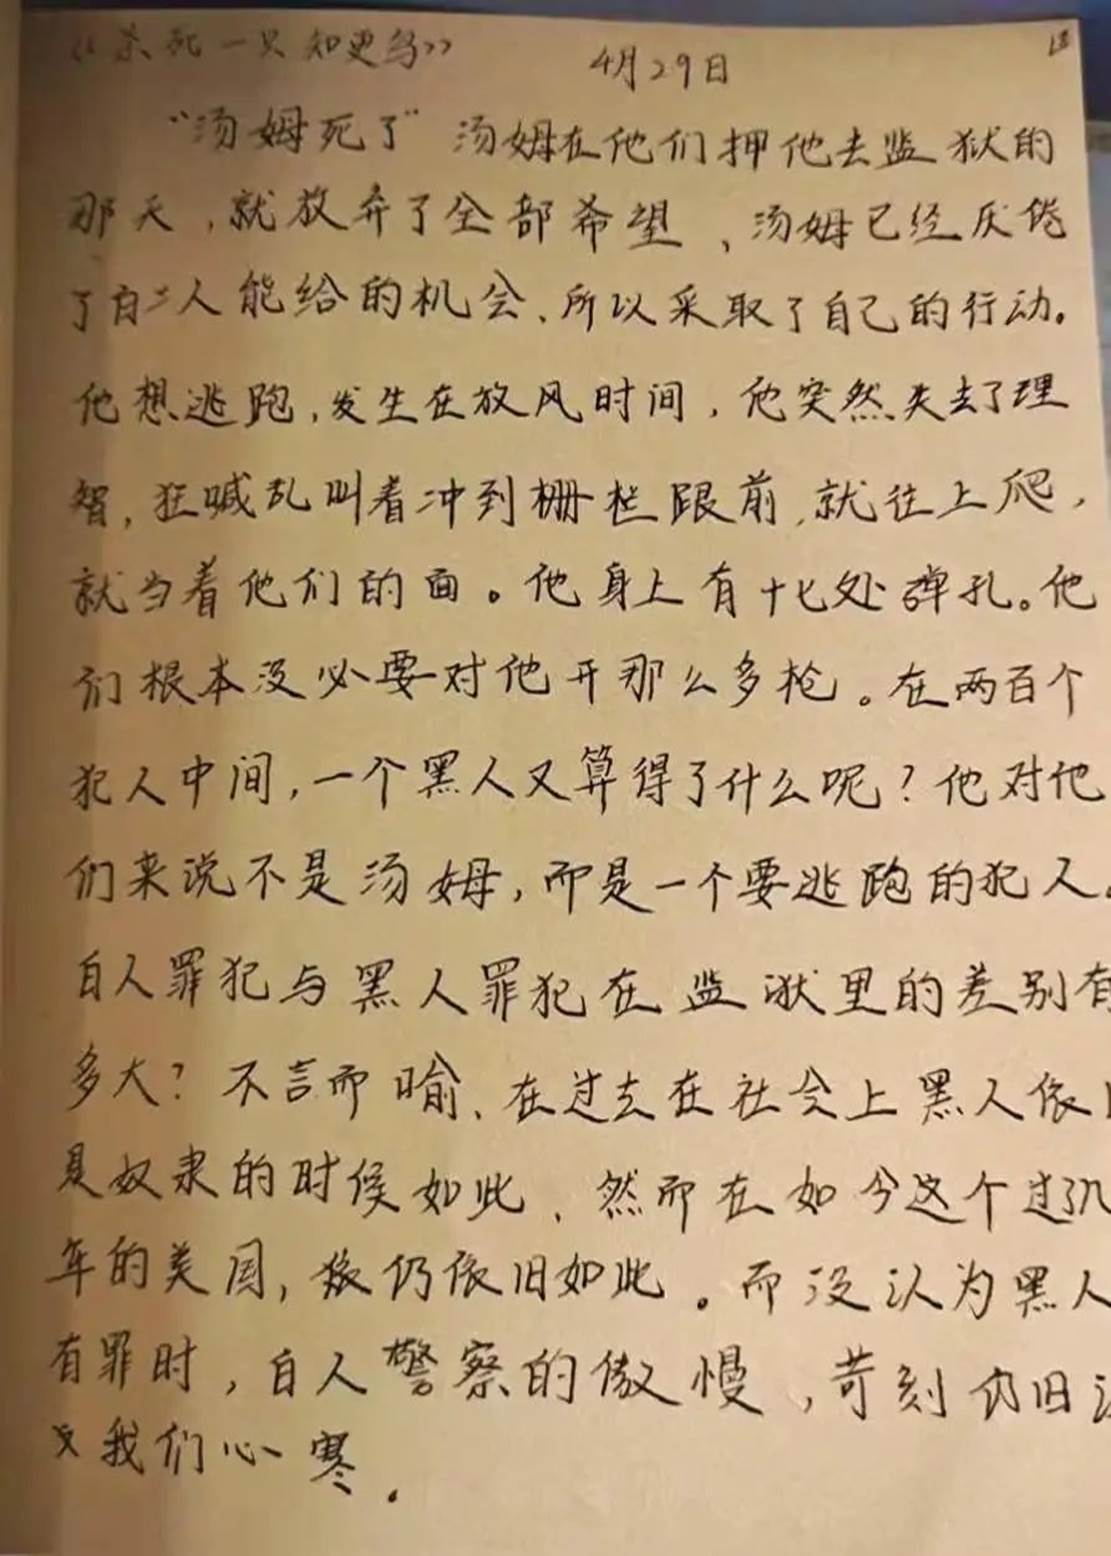 《杀死一只知更鸟》 4月29日
“汤姆死了”汤姆在他们押他去监狱的
那天,就放弃了全部希望,汤姆已经厌倦
了白人能给的机会、所以采取了自己的行动。
他想逃跑,发生在放风时间,他突然失去了理
智,狂喊乱叫着冲到栅栏跟前,就往上爬,
就当着他们的面。他身上有十七处弹孔。他
们根本没必要对他开那么多枪。在两百个
犯人中间,一个黑人又算得了什么呢?他对他
们来说不是汤姆,而是一个要逃跑的犯人。
白人罪犯与黑人罪犯在监狱里的差别有
多大?不言而喻、在过去在社会上黑人依
是奴隶的时候如此、然而在如今这个过
年的美国,仍依旧如此。而没认为黑人
有罪时,白人警察的傲慢,苛刻仍旧
我们心寒.